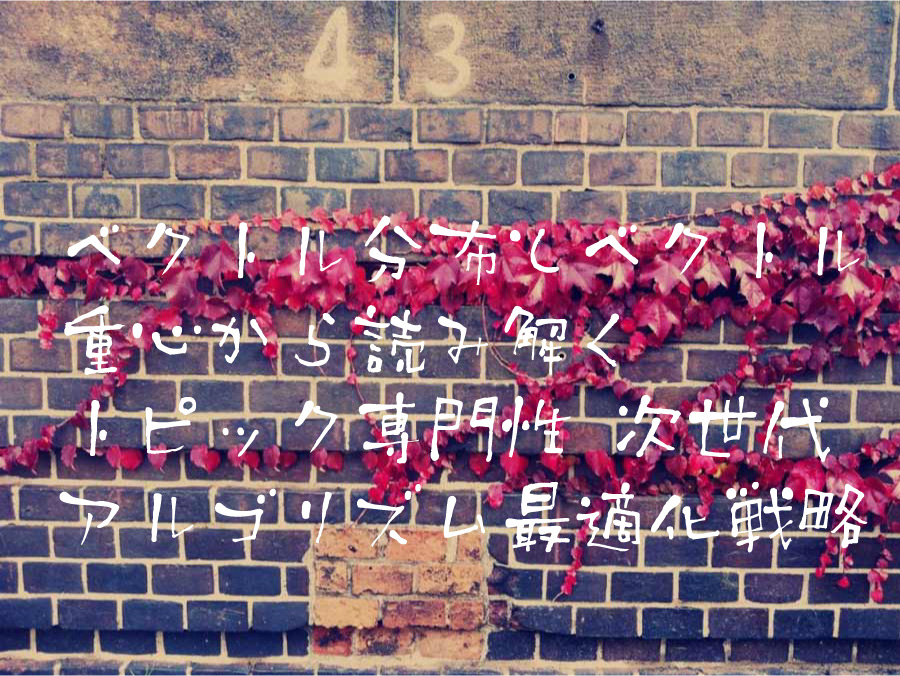 43
ベクトル分布とベクトル
重心から読み解く
トピック専門性 次世代
アルゴリズム最適化戦略